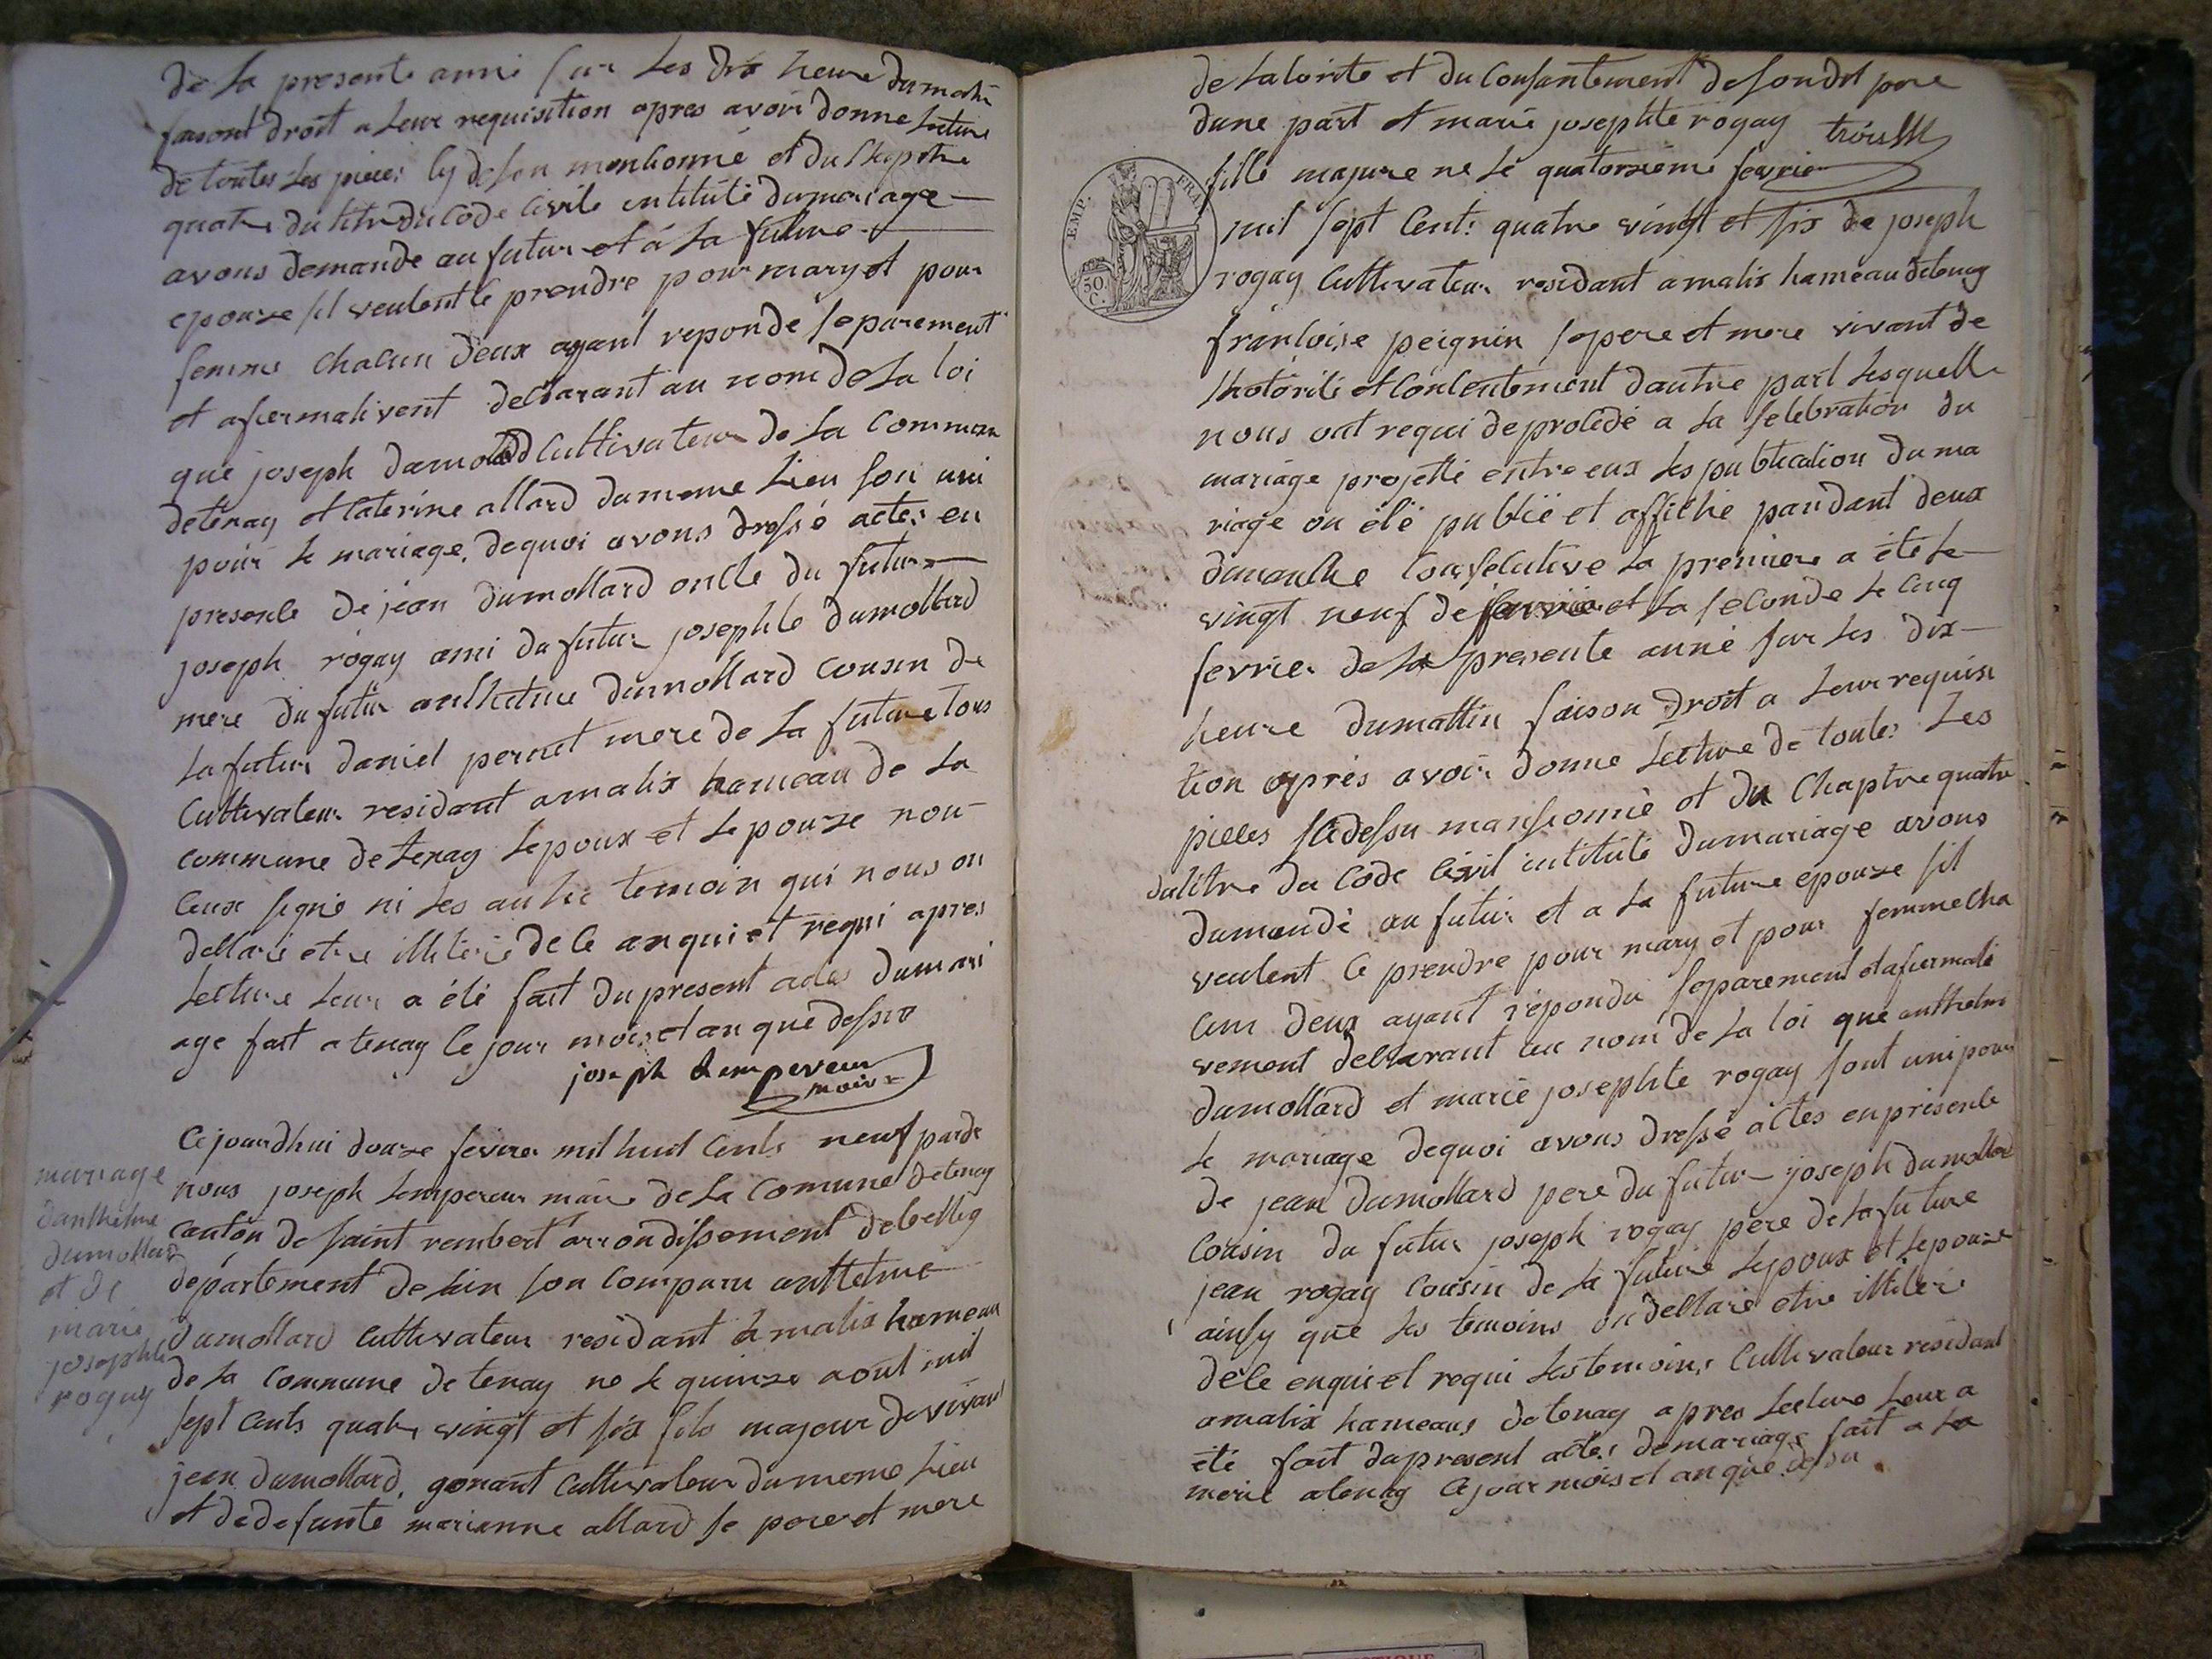 de la presente anné sur les dix heure du matin
faisont droit a leur requisition apres avoir donne lecture
de toutes les pieces cy desu montionné et du Chapitre
quatre du titre du Code Civile intitulé du mariage
avons demande au futur et à la future
epouze sil veulent ce prendre pour mary et pour
femme chacun deux ayant repondé separement
et afiermativent declarant au nom de la loi
que joseph dumollard Cultivateur de la Commune
detenay et Caterine allard du meme lieu son uni
pour le mariage. dequoi avons dressé actes en
presence de jean dumollard oncle du futur
joseph rogay ami du futur josephte dumollard
mere du futur anthelme dumollard cousin de
la futur daniel pernet mere de la future tous
Cultivateur residant amalix hameau de la
commune de tenay lepoux et lepouze non
ceux signé ni les autre temoin qui nous on
declaré etre illiteré de ce anquiet requi apres
lecture leur a élé fait du present actes du mari
age fait a tenay le jour mois et an que dessus
joseph Lempereur
maire
mariage
danthelme
dumollard
et de
marie
josephte
rogay
Cejourdhui douze fevrier mil huit Cents neuf parde
nous joseph Lempereur maire de la Comune detenay
canton de saint rembert arrondissement debelley
département de lain son comparu anthelme
dumollard cultivateur residant à malix hameau
de la Commune de tenay ne le quinze août mil
sept cents quatre vingt et six fils majeur de vivant
jean dumollard, gonant Cultivateur du meme lieu
et de defunte marianne allard se pere et mere
de latorite et du Consantement de son dit pere
dune part et marie josephte rogay trois
fille majure ne le quatorzième fevrier
mil sept Cents quatre vingt et six de joseph
rogay Cultivateur residant amalix hameau detenay
françoise peignin se pere et mere vivant de
lhotorité et Contentement dautre part lesquelle
nous ont requi deprocédé a la selebration du
mariage projetté entre eux les publication du ma
riage on élé publié et affiché pandant deux
dimanche Consecutive la premiere a été le
vingt neuf de et la seconde le cinq
fevrier de la presente anné sur les dix
heure dumattin faison droit a leur requisi
tion après avoir donne lecture de toutes les
pieces sidessu mansionné et du Chapitre quatre
dutitre du Code Civil intitulé dumariage avons
dumandé au futur et a la future epouze sil
veulent ce prendre pour mary et pour femme cha
cun deux ayant repondu separement et afiermati
vement declarant au nom de la loi que anthelm
dumollard et marie josephte rogay sont uni pour
le mariage dequoi avons dressé actes en presence
de jean dumollard pere du futur joseph dumollard
Cousin du futur joseph rogay père de la future
jean rogay cousin de la future lepoux et lepouze
ainsy que les temoins on declaré etre illiteré
dèce enquiet requi les temoins Cultivateur residant
amalix hameaus de tenay apres lecture leur a
été fait du present actes de mariage fait a la
merie atenay le jour mois et an que dessu
EMP. FRA
50.
C.